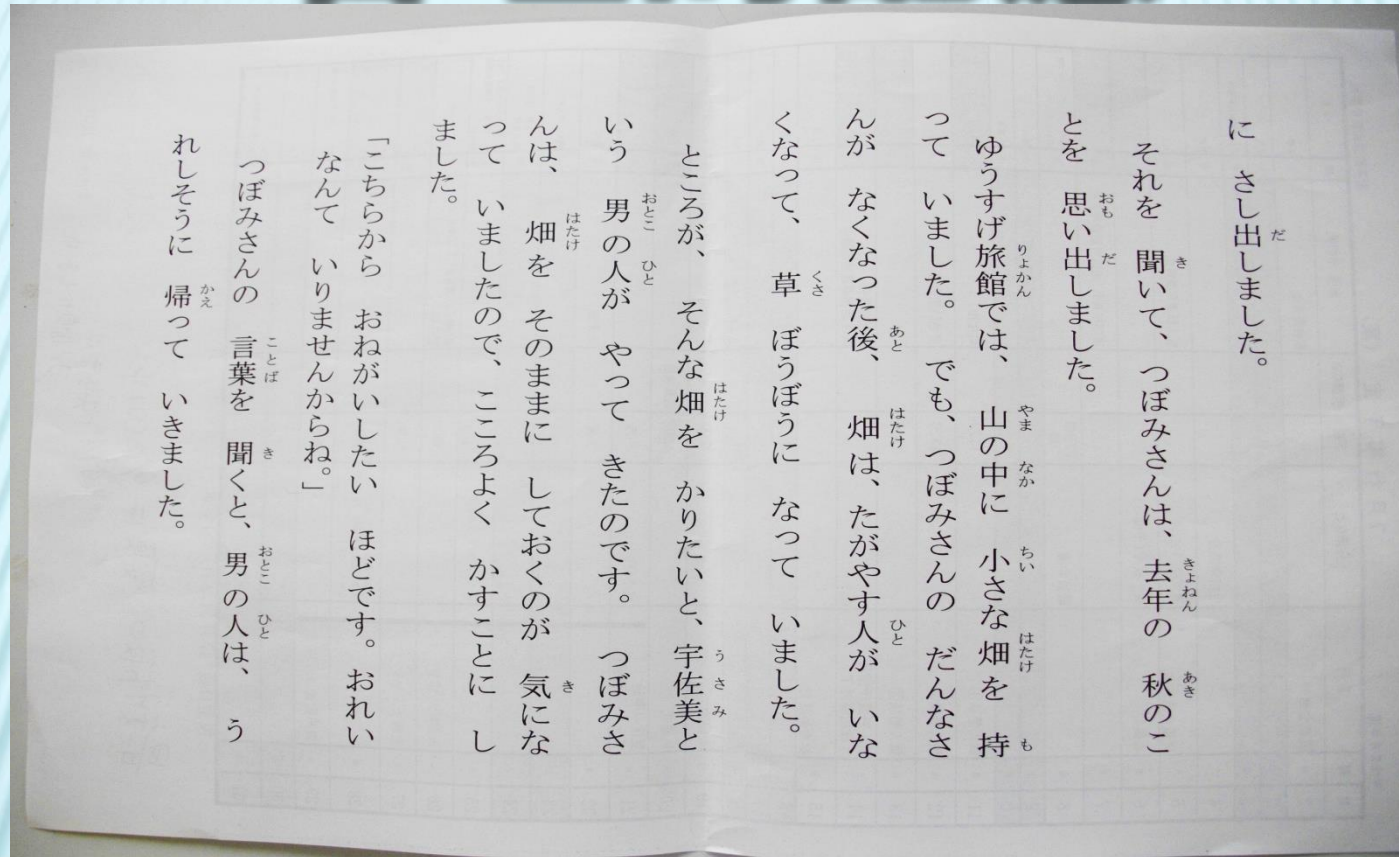 に　さし出しました。
それを　聞いて、つぼみさんは、去年の　秋のこ
とを　思い出しました。
ゆうすげ旅館では、　山の中に　小さな畑を　持
って　いました。　でも、つぼみさんの　だんなさ
んが　なくなった後、　畑は、たがやす人が　いな
くなって、　草　ぼうぼうに　なって　いました。
ところが、　そんな畑を　かりたいと、宇佐美と
いう　男の人が　やって　きたのです。　つぼみさ
んは、　畑を　そのままに　しておくのが　気にな
って　いましたので、こころよく　かすことに　し
ました。
「こちらから　おねがいしたい　ほどです。おれい
なんて　いりませんからね。」
つぼみさんの　言葉を　聞くと、男の人は、　う
れしそうに　帰って　いきました。